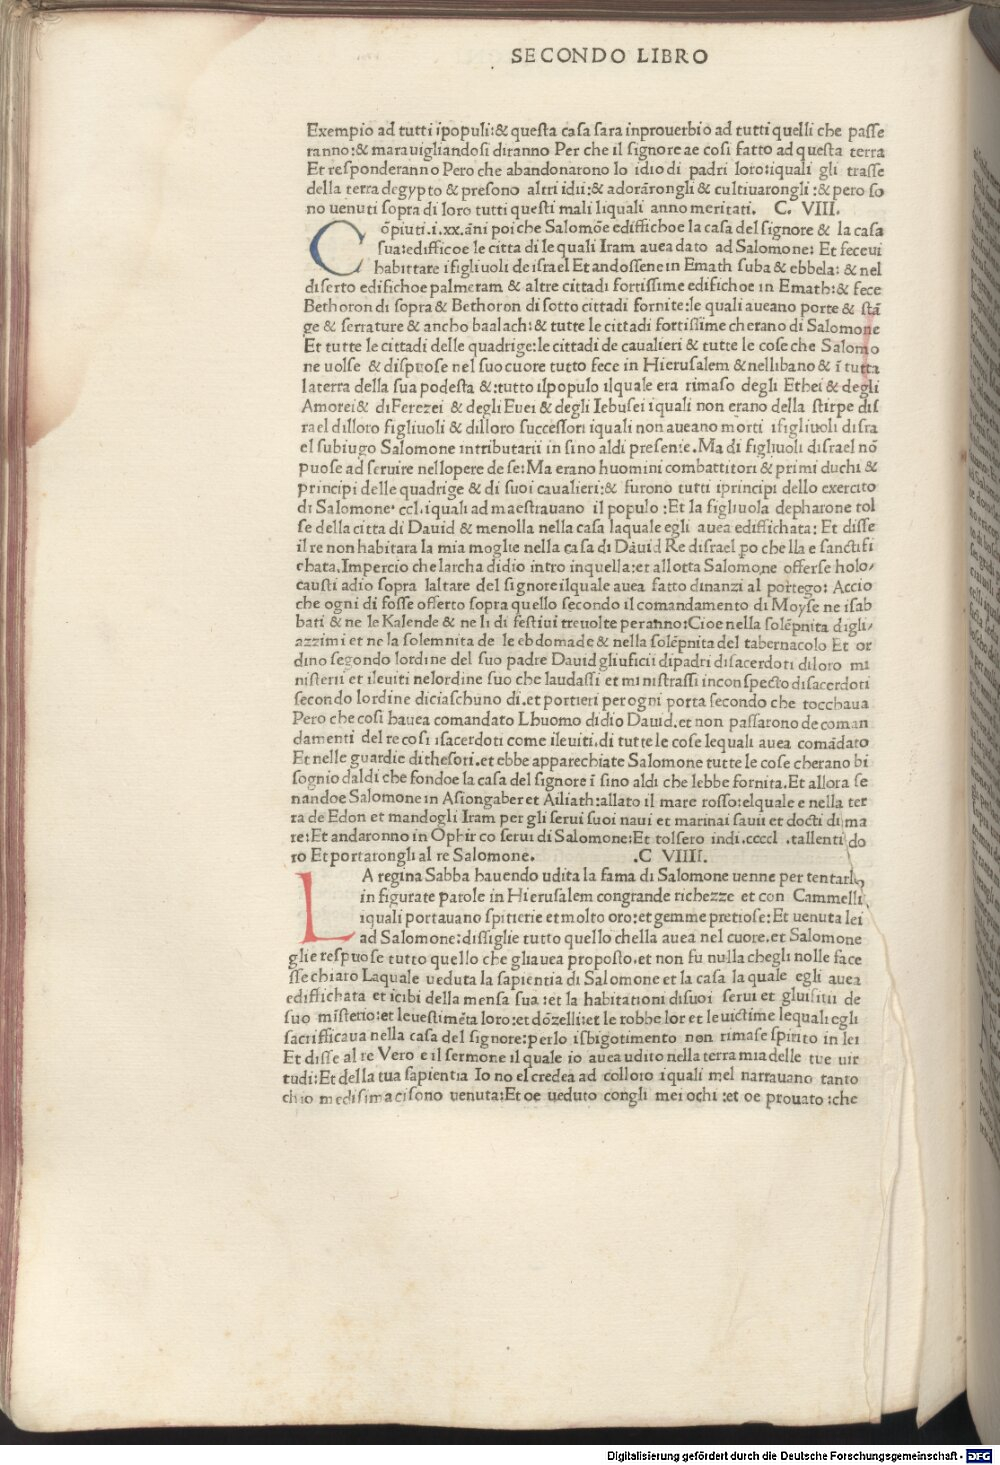 SECONDO LIBRO
Exempio ad tutti ipopuli:& questa casa sara inprouerbio ad tutti quelli che passe
ranno:& marauigliandosi diranno Per che il signore ae cosi fatto ad questa terra
Et responderanno Pero che abandonarono lo idio di padri loro:iquali gli trasse
della terra degypto & presono altri idii:& adorārongli & cultiuarongli:& pero so
no uenuti sopra di loro tutti questi mali liquali anno meritati. C. VIII.
Cōpiuti.i.xx.āni poi che Salomōe ediffichoe la casa del signore & la casa
sua:edifficoe le citta di le quali Iram auea dato ad Salomone: Et feceui
habittare ifigliuoli de israel Et andossene in Emath suba & ebbela: & nel
diserto edifichoe palmeram & altre cittadi fortissime edifichoe in Emath:& fece
Bethoron di sopra & Bethoron di sotto cittadi fornite:le quali aueano porte & stā
ge & serrature & ancho baalach:& tutte le cittadi fortissime cherano di Salomone
Et tutte le cittadi delle quadrige:le cittadi de caualieri & tutte le cose che Salomo
ne uolse & dispuose nel suo cuore tutto fece in Hierusalem & nellibano & ī tutta
laterra della sua podesta &:tutto ilpopulo ilquale era rimaso degli Ethei & degli
Amorei & di Ferezei & degli Euei & degli Iebusei iquali non erano della stirpe dis
rael dilloro figliuoli & dilloro successori iquali non aueano morti ifigliuoli disra
el subiugo Salomone intributarii in sino aldi presente.Ma di figliuoli disrael nō
puose ad seruire nellopere de se:Ma erano huomini combattitori & primi duchi &
principi delle quadrige & di suoi caualieri:& furono tutti iprincipi dello exercito
di Salomone.ccl.iquali ad maestrauano il populo :Et la figliuola depharone tol
se della citta di Dauid & menolla nella casa laquale egli auea ediffichata: Et disse
il re non habitara la mia moglie nella casa di Dauid Re disrael po che lla e sanctifi
chata.Impercio che larcha didio intro inquella:et allotta Salomone offerse holo/
causti adio sopra laltare del signore ilquale auea fatto dinanzi al portego: Accio
che ogni di fosse offerto sopra quello secondo il comandamento di Moyse ne isab
bati & ne le Kalende & ne li di festiui tre uolte per anno:Cioe nella solēpnita digli/
azzimi et ne la solemnita de le ebdomade & nella solēpnita del tabernacolo Et or
dino segondo lordine del suo padre Dauid gliuficii di padri disacerdoti diloro mi
nisterii et ileuiti nelordine suo che laudassi et ministrassi inconspecto disacerdoti
secondo lordine diciaschuno di.et portieri per ogni porta secondo che tocchaua
Pero che cosi hauea comandato Lhuomo didio Dauid.et non passarono de coman
damenti del re cosi isacerdoti come ileuiti.di tutte le cose lequali auea comādato
Et nelle guardie di thesori.et ebbe apparechiate Salomone tutte le cose cherano bi
sognio daldi che fondoe la casa del signore ī sino aldi che lebbe fornita.Et allora se
nandoe Salomone in Asiongaber et Ailiath:allato il mare rosso:elquale e nella ter
ra de Edon et mandogli Iram per gli serui suoi naui et marinai sauii et docti di ma
re:Et andaronno in Ophir co serui di Salomone:Et tolsero indi.ccccl .tallenti do
ro Et portarongli al re Salomone. .C VIIII.
LA regina Sabba hauendo udita la fama di Salomone uenne per tentarlo
in figurate parole in Hierusalem con grande richezze et con Cammelli
iquali portauano spitierie et molto oro:et gemme pretiose:Et uenuta lei
ad Salomone:dissiglie tutto quello chella auea nel cuore.et Salomone
glie respuose tutto quello che gliauea proposto.et non fu nulla chegli nolle face
sse chiaro Laquale ueduta la sapientia di Salomone et la casa la quale egli auea
ediffichata et icibi della mensa sua :et la habitationi disuoi serui et gluisitii de
suo misterio:et leuestimēta loro:et dōzelli:et le robbe lor et le uictime lequali egli
sacrifficaua nella casa del signore:per lo isbigotimento non rimase spirito in lei
Et disse al re Vero e il sermone il quale io auea udito nella terra mia delle tue uir
tudi:Et della tua sapientia Io no el credea ad colloro iquali mel narrauano tanto
ch io medisima ci sono uenuta:Et oe ueduto congli mei ochi :et oe prouato :che
Digitalisierung gefördert durch die Deutsche Forschungsgemeinschaft - DFG